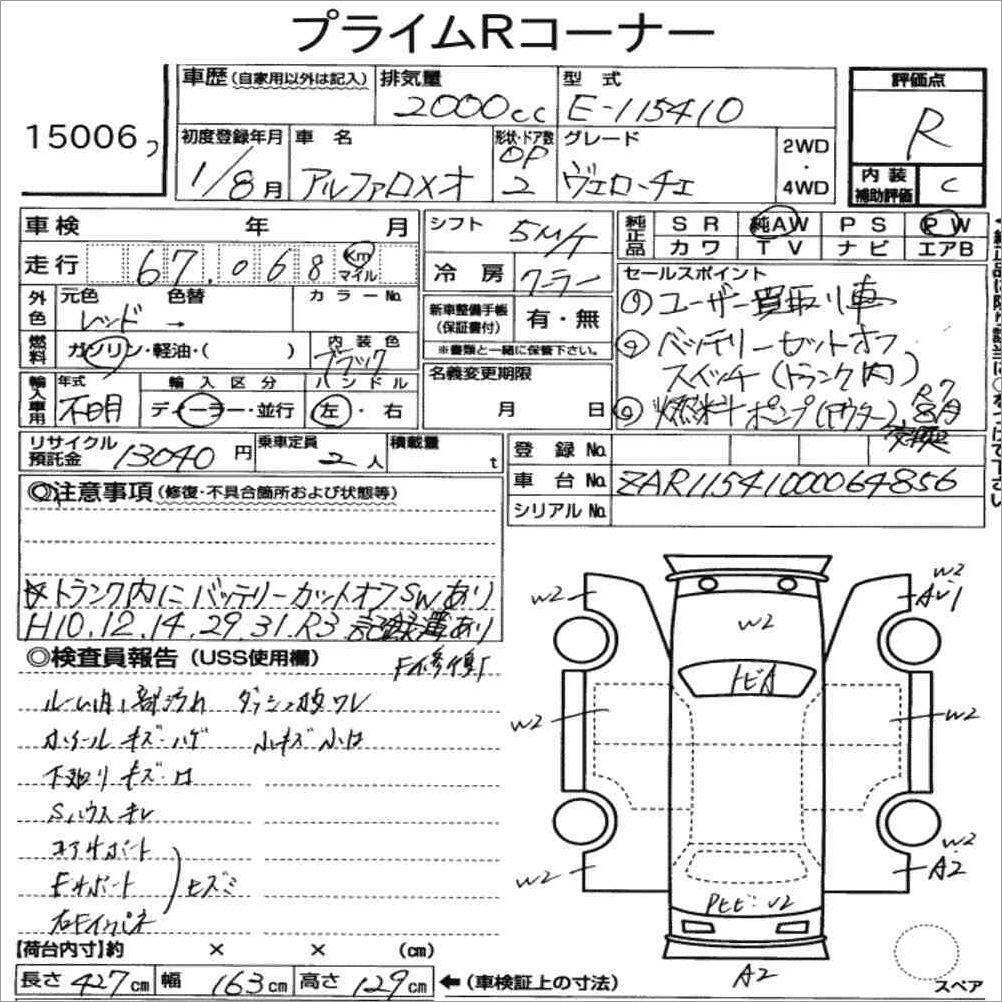 プライムRコーナー
15006
車歴 (自家用以外は記入) 排気量 2000cc 型式 E-115410
評価点 R
内装補助評価 C
初度登録年月 1/8月 車名 アルファロメオ 形状・ドア数 OP 2 グレード ヴェローチェ 2WD・4WD
車検 年 月 シフト 5M/T
純正品 SR 純AW PS PW
カワ TV ナビ エアB
走行 67,068 km マイル 冷房 クーラー
外色 元色 レッド → 色替 カラーNo.
新車整備手帳 (保証書付) 有・無
※書類と一緒に保管下さい。
燃料 ガソリン・軽油・( ) 内装色 ブラック
セールスポイント
① ユーザー買取り車
② バッテリーセットオフ
スイッチ(トランク内)
③ 燃料ポンプ(アウター) R7 8月 交換
輸入車用 年式 不明 輸入区分 ディーラー・並行 ハンドル 左・右
名義変更期限 月 日
リサイクル預託金 13040円 乗車定員 2人 積載量 t
登録No.
車台No. ZAR11541000064856
シリアルNo.
◎注意事項 (修復・不具合箇所および状態等)
☆トランク内にバッテリーカットオフSWあり
H10.12.14.29.31.R3 記録簿あり
◎検査員報告 (USS使用欄)
ルーム内一部汚れ ダッシュ板ワレ
ホイールキズ・ハゲ 小キズ小凹
下廻りキズ・凹
Sハウスキレ
コアサポート
Fサポート
右Fインパネ
ヒズミ
W2 W2
AW1
W2
トビA
W2 W2
W2 W2
A2
A2
スペア
【荷台内寸】約 × × (cm)
長さ 427cm 幅 163cm 高さ 129cm ←(車検証上の寸法)